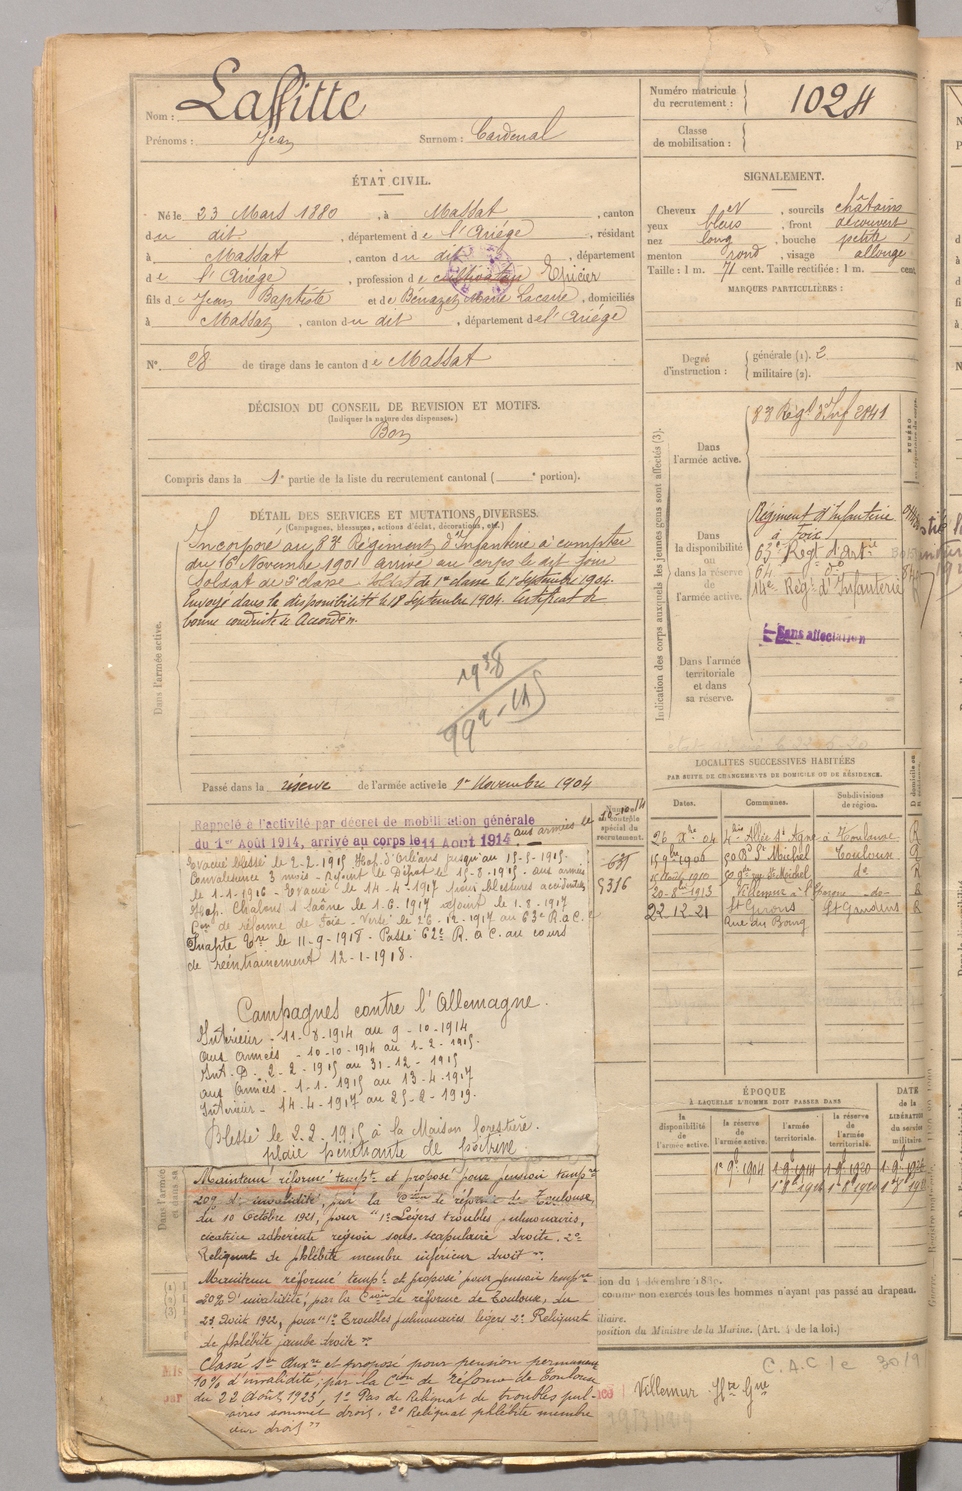 Nom : Laffitte
Prénoms : Jean Surnom : Cardenal
ÉTAT CIVIL.
Né le 23 Mars 1880, à Massat, canton
du dit, département de l'Ariége, résidant
à Massat, canton du dit, département
de l'Ariége, profession de cultivateur Epicier
fils de Jean Baptiste et de Bénazet Marie, domiciliés
à Massat, canton du dit, département de l'Ariége
N° 28 de tirage dans le canton de Massat
DÉCISION DU CONSEIL DE REVISION ET MOTIFS.
(Indiquer la nature des dispenses.)
Bon
Compris dans la 1e partie de la liste du recrutement cantonal ( e portion).
DÉTAIL DES SERVICES ET MUTATIONS DIVERSES.
(Campagnes, blessures, actions d'éclat, décorations, etc.)
Dans l'armée active.
Incorporé au 83e Régiment d'Infanterie à compter
du 16 Novembre 1901 arrivé au corps le dit jour
Soldat de 2e classe Soldat de 1re classe le 1er Septembre 1904.
Envoyé dans la disponibilité le 18 Septembre 1904. Certificat de
bonne conduite Accordé.
1938
Passé dans la réserve de l'armée active le 1er Novembre 1904
Rappelé à l'activité par décret de mobilisation générale
du 1er Août 1914, arrivé au corps le 11 Aout 1914. aux armées le
10-10-14
Evacué blessé le 2-2-1915 Hop. d'Orléans jusqu'au 15-5-1915.
Convalesence 3 mois - Rejoint le Dépôt le 15-8-1915 - aux armées
le 1-1-1916 - Evacué le 14-4-1917 pour blessures accidentelles
Hop. Chalons s/ Saône le 1-6-1917 rejoint le 1-8-1917
Con de réforme de Foix - Versé le 26-12-1917 au 63e R.a.C.
Inapte le 11-9-1918 - Passé 62e R.a.C. au cours
de réentrainement 12-1-1918.
Campagnes contre l'Allemagne.
Intérieur - 11-8-1914 au 9-10-1914
aux armées - 10-10-1914 au 1-2-1915.
Int. B. 2-2-1915 au 31-12-1915
aux Armées - 1-1-1915 au 13-4-1917
Intérieur - 14-4-1917 au 25-2-1919.
Blessé le 2-2-1915 à la Maison forestière.
plaie pénétrante de poitrine
Maintenu réformé tempre et proposé pour pension tempre
20% d'invalidité, par la Con de réforme de Toulouse,
du 10 Octobre 1921, pour "1° Légers troubles pulmonaires,
cicatrice adhérente région sous-scapulaire droite. 2°
Reliquat de phlébite membre inférieur droit".
Maintenu réformé tempre et proposé pour pension tempre
20% d'invalidité, par la Con de réforme de Toulouse, du
23 Août 1922, pour "1° Troubles pulmonaires légers 2° Reliquat
de phlébite jambe droite".
Classé et proposé pour pension permanente
10% d'invalidité, par la Con de réforme de Toulouse
du 22 Août 1923, 1° Pas de Reliquat de troubles pul-
aires sommet droit. 2° Reliquat phlébite membre
ieur droit"
Numéro matricule du recrutement : 1024
Classe de mobilisation :
SIGNALEMENT.
Cheveux et, sourcils châtains
yeux bleus, front découvert
nez long, bouche petite
menton rond, visage allongé
Taille : 1 m. 71 cent. Taille rectifiée : 1 m. cent.
MARQUES PARTICULIÈRES :
Degré d'instruction : générale (1). 2
militaire (2).
Indication des corps auxquels les jeunes gens sont affectés (3).
Dans l'armée active.
83e Régt d'Inf 2841
Dans la disponibilité ou dans la réserve de l'armée active.
Régiment d'Infanterie
à Foix
63e Regt d'Artie
64 do
14e Rég. d'Infanterie
Sans affectation
Dans l'armée territoriale et dans sa réserve.
LOCALITES SUCCESSIVES HABITÉES
PAR SUITE DE CHANGEMENTS DE DOMICILE OU DE RÉSIDENCE.
Dates. Communes. Subdivisions de région.
26 Xbre 04 4bis Allée St Agne à Toulouse R
15 9bre 1906 50 Bd St Michel Toulouse R
15 Août 1910 50 gde rue St Michel do R
20-8bre-1913 Villemur -do- R
22.12.21 St Girons St Gaudens R
Rue du Bourg
Numéro au contrôle spécial du recrutement.
635
9316
ÉPOQUE
À LAQUELLE L'HOMME DOIT PASSER DANS
la disponibilité de l'armée active. la réserve de l'armée active. l'armée territoriale. la réserve de l'armée territoriale. DATE de la LIBÉRATION du service militaire.
1er 9bre 1904
ion du 4 décembre 1889.
comme non exercés tous les hommes n'ayant pas passé au drapeau.
iliaire.
position du Ministre de la Marine. (Art. 4 de la loi.)
C.A.C / e 30/9
Villemur Hte Gne